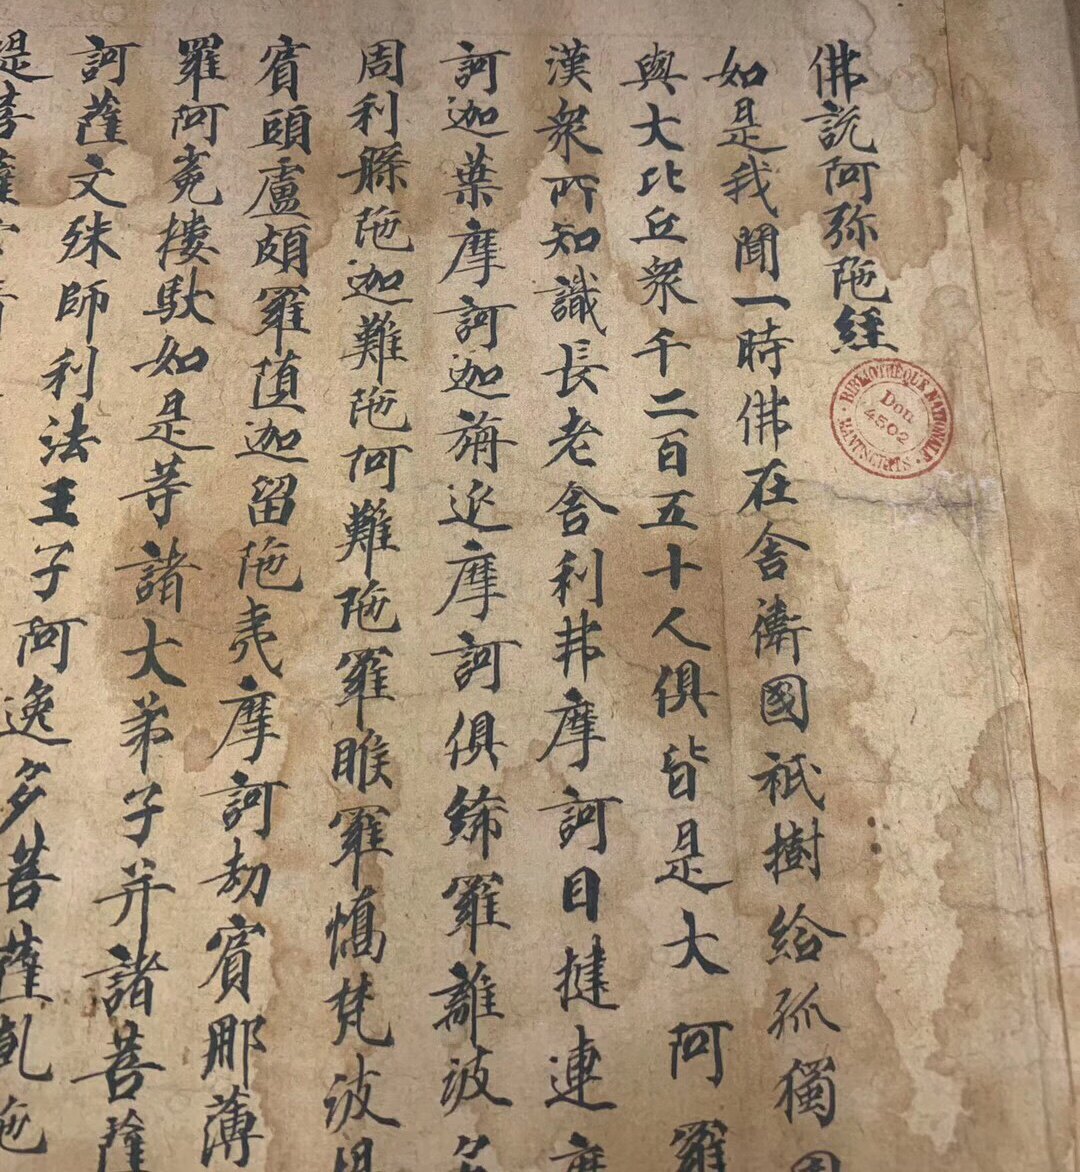 佛説阿弥陁経
如是我聞一時佛在舎衛國祇樹給孤獨園
與大比丘衆千二百五十人俱皆是大阿羅
漢衆所知識長老舎利弗摩訶目揵連摩
訶迦葉摩訶迦旃近摩訶俱絺羅離波多
周利縣陁迦難陁阿難陁羅睺羅憍梵波提
賓頭盧頗羅堕迦留陁夷摩訶劫賓那薄
羅阿㝹樓馱如是等諸大弟子并諸菩薩
訶薩文殊師利法王子阿逸多菩薩乹陁
提菩薩
BIBLIOTHÈQUE NATIONALE
Don
4502
MANUSCRITS